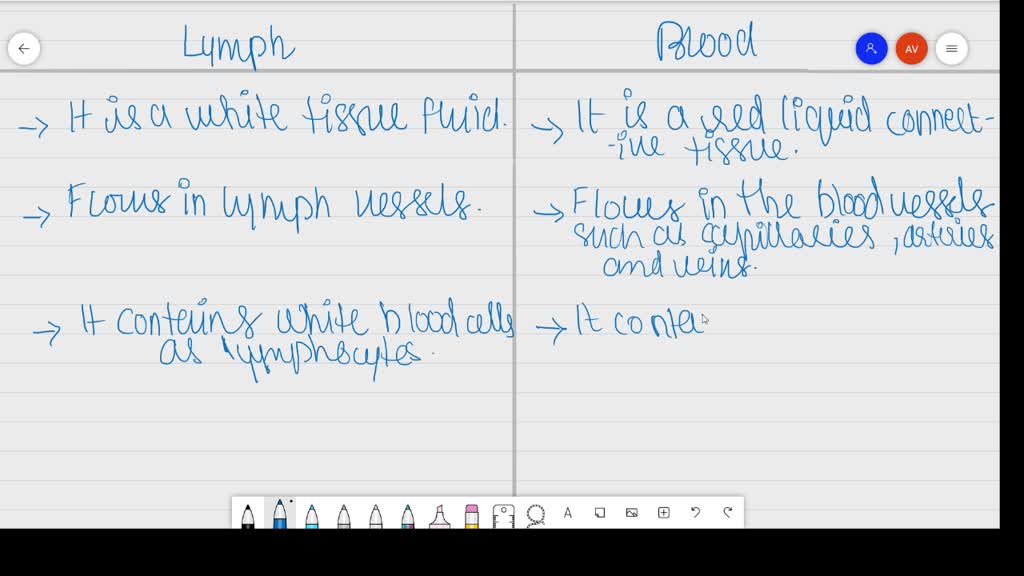 Lymph
Blood
AV
→ It is a white tissue fluid.
→ It is a red liquid connect-
-ive tissue.
→ Flows in lymph vessels.
→ Flows in the blood vessels
such as capillaries, arteries
and veins.
→ It contains white blood cells
as lymphocytes.
→ It conta
A